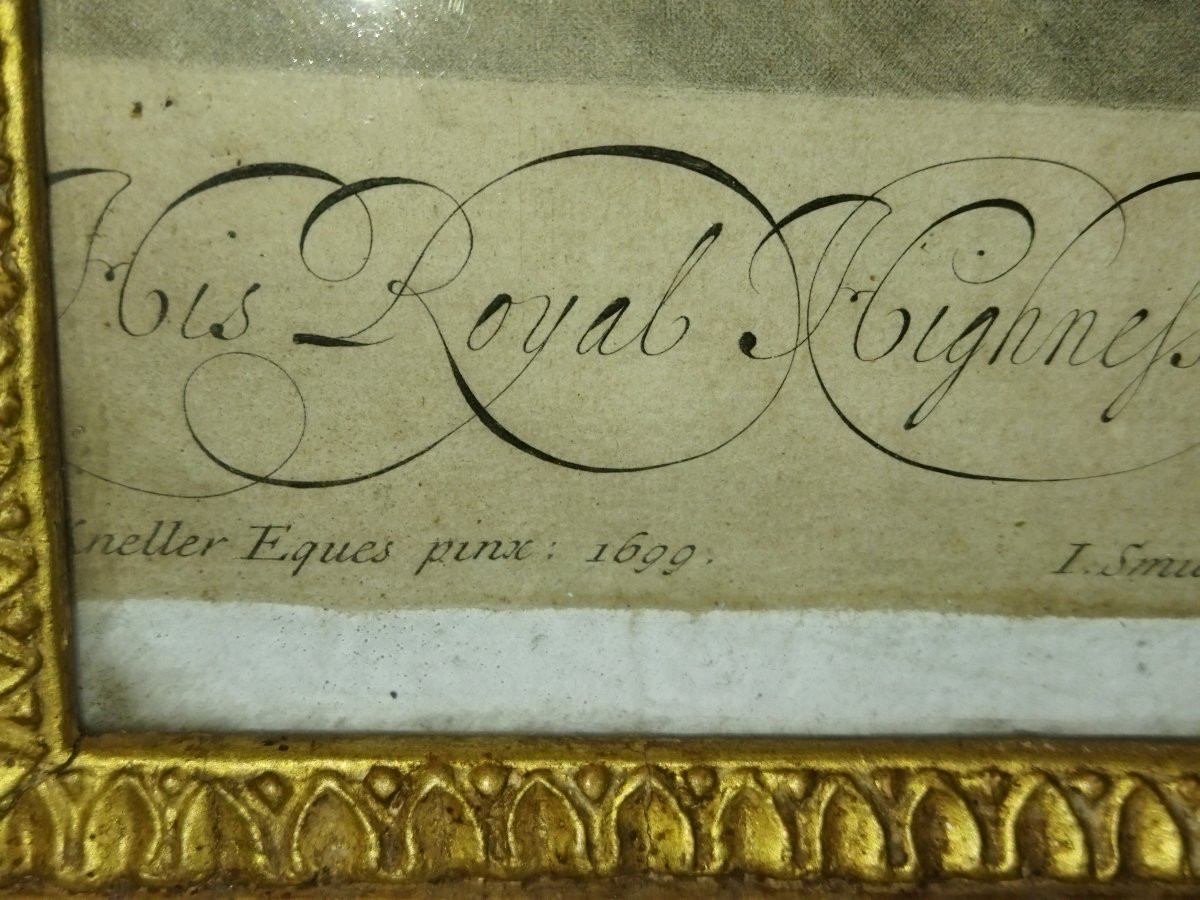 His Royal Highneſs
Kneller Eques pinx: 1699.
I. Smi